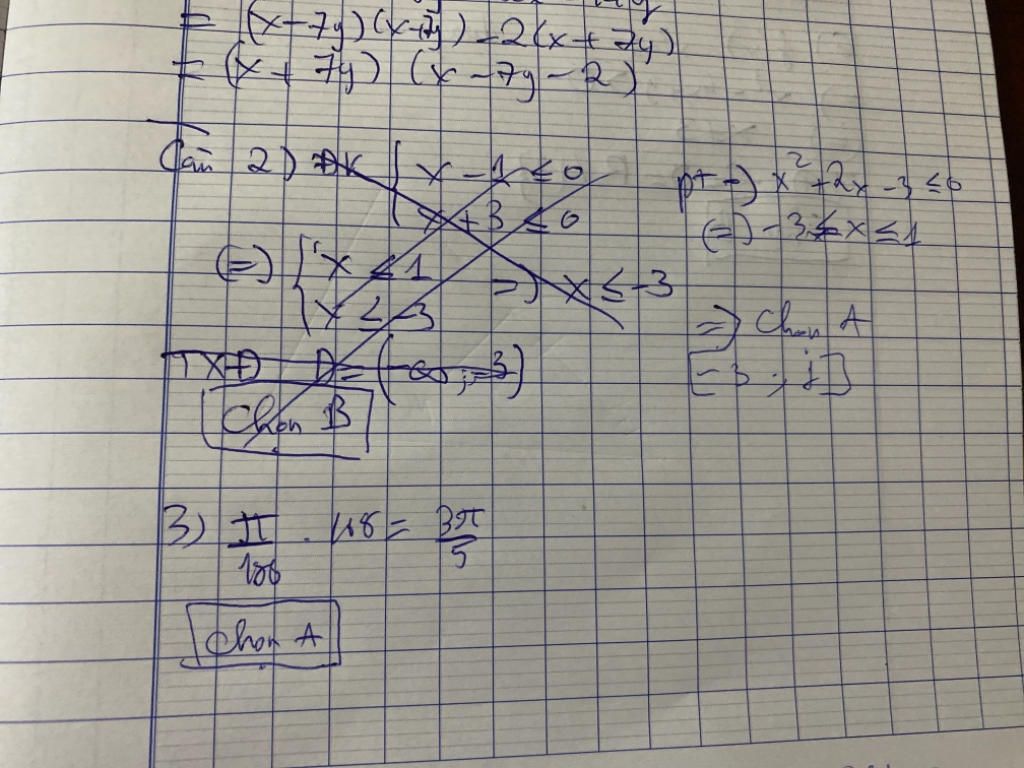 = (x-7y)(x+7y) - 2(x+7y)
= (x + 7y) (x - 7y - 2)
Câu 2) ĐK { x - 1 ≤ 0
x + 3 ≤ 0
(=) { x ≤ 1
x ≤ -3
=) x ≤ -3
TXĐ D = (-∞ ; -3)
Chọn B
pt -) x² + 2x - 3 ≤ 0
(=) - 3 ≤ x ≤ 1
=) Chọn A
[-3 ; 1]
3) π/180 . 108 = 3π/5
Chọn A